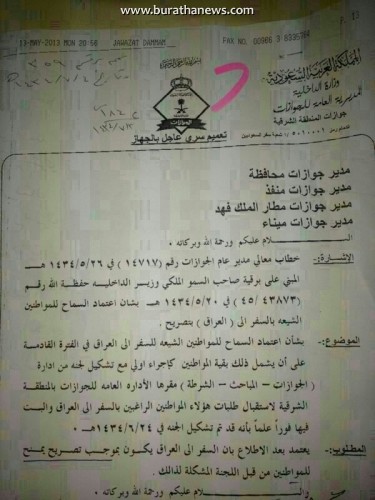 www.burathanews.com
13-MAY-2013 MON 20:58 JAWAZAT DAMMAM FAX NO. 00966 3 8335758 P. 11
المملكة العربية السعودية
وزارة الداخلية
المديرية العامة للجوازات
جوازات المنطقة الشرقية
الجوازات
تعميم سري عاجل بالجهاز
مدير جوازات محافظة
مدير جوازات منفذ
مدير جوازات مطار الملك فهد
مدير جوازات ميناء
الســلام عليكم ورحمة الله وبركاته
الإشــارة:- خطاب معالي مدير عام الجوازات رقم ( ١٤٧١٧ ) في ١٤٣٤/٥/٢٦ هـــ
المبني على برقية صاحب السمو الملكي وزيـر الداخليـه حفظـة الله رقـم
( ٤٣٨٧٣ /٤٥ ) في ١٤٣٤/٥/٢٠ هـ بشأن اعتماد السماح للمواطنين
الشيعه بالسفر الى ( العراق ) بتصريح .
الموضوع:- بشأن اعتماد السماح للمواطنين الشيعه للسفر الى العراق في الفترة القادمة
على أن يشمل ذلك بقية المواطنين كإجراء اولي مع تشكيل لجنه من ادارة
( الجوازات – المباحث – الشرطة ) مقرها الأداره العامه للجوازات بالمنطقة
الشرقية لاستقبال طلبات هؤلاء المواطنين الراغبين بالسفر الى العراق والبت
فيها فوراً علماً بأنه قد تم تشكيل الجنه في ١٤٣٤/٦/٢٤هـ .
المطلوب:- يعتمد بعد الاطلاع بان السفر الى العراق يكــون بموجب تصريح يمنح
للمواطنين من قبل اللجنة المشكلة لذالك .
عليكم ورحمة الله وبركاته